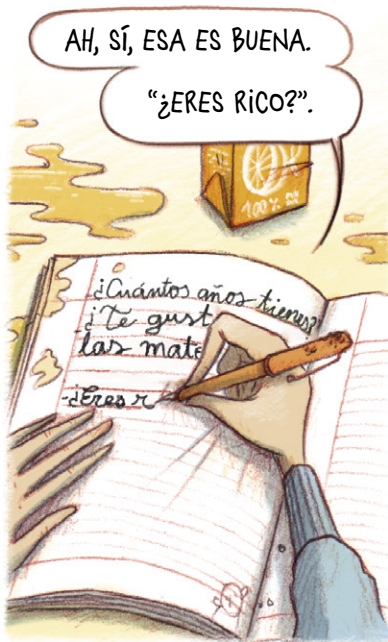 AH, SÍ, ESA ES BUENA.
“¿ERES RICO?”.
100%
¿Cuántos años tienes?
¿Te gust
las mate
-¿Eres r